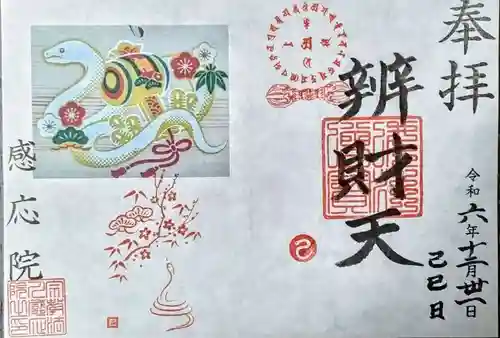 奉拝
令和六年十二月卅一日
己巳日
辨財天
感応院